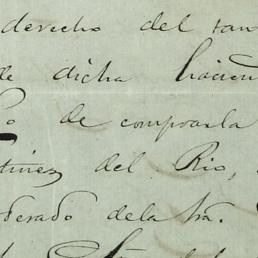 derecho del tan
de dicha hacien
o de comprarla
tinez del Rio,
derado dela Sra.